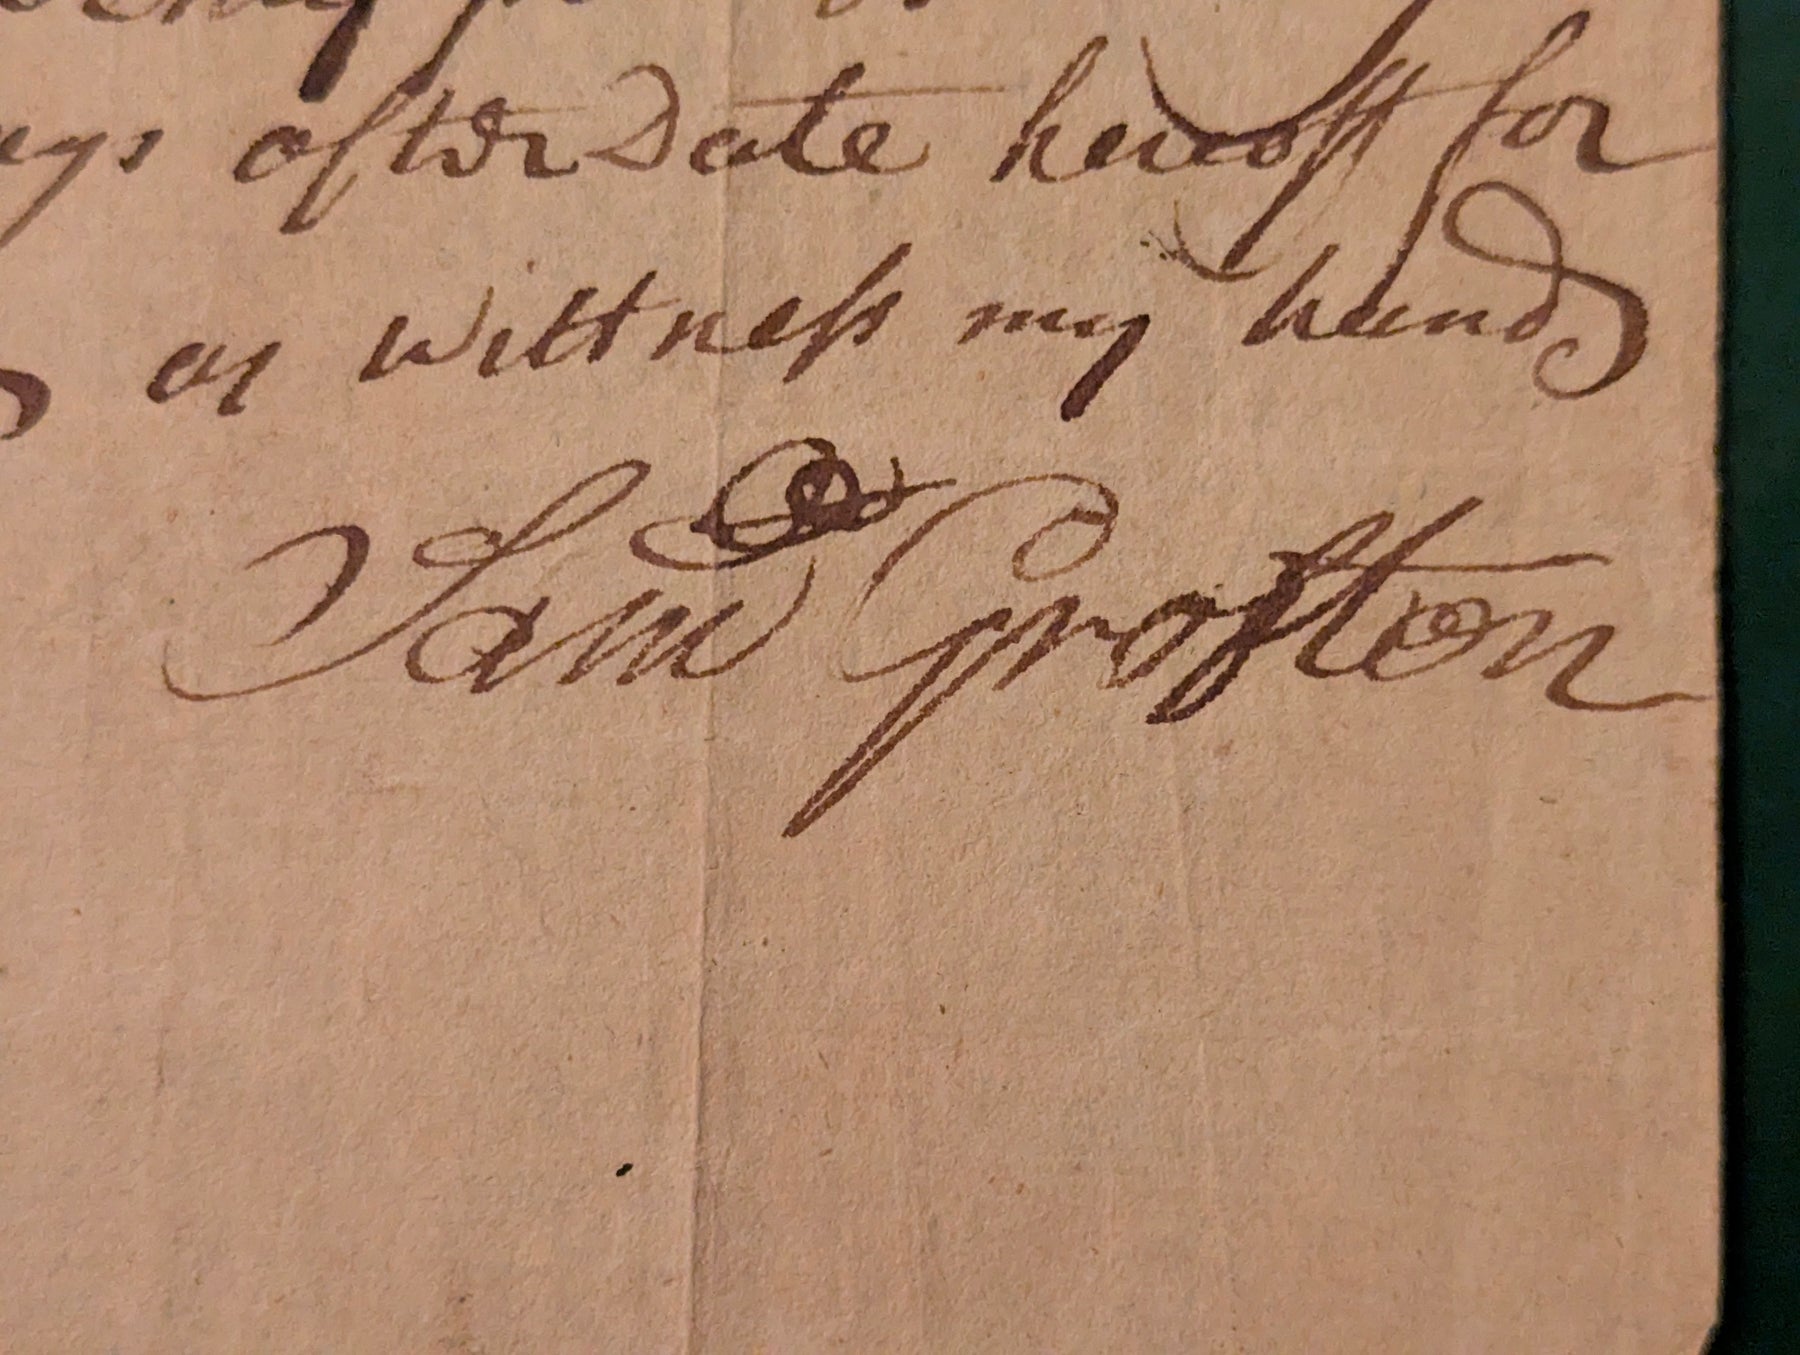 ays after Date hereoff for
as wittness my hand
Sam Grafton